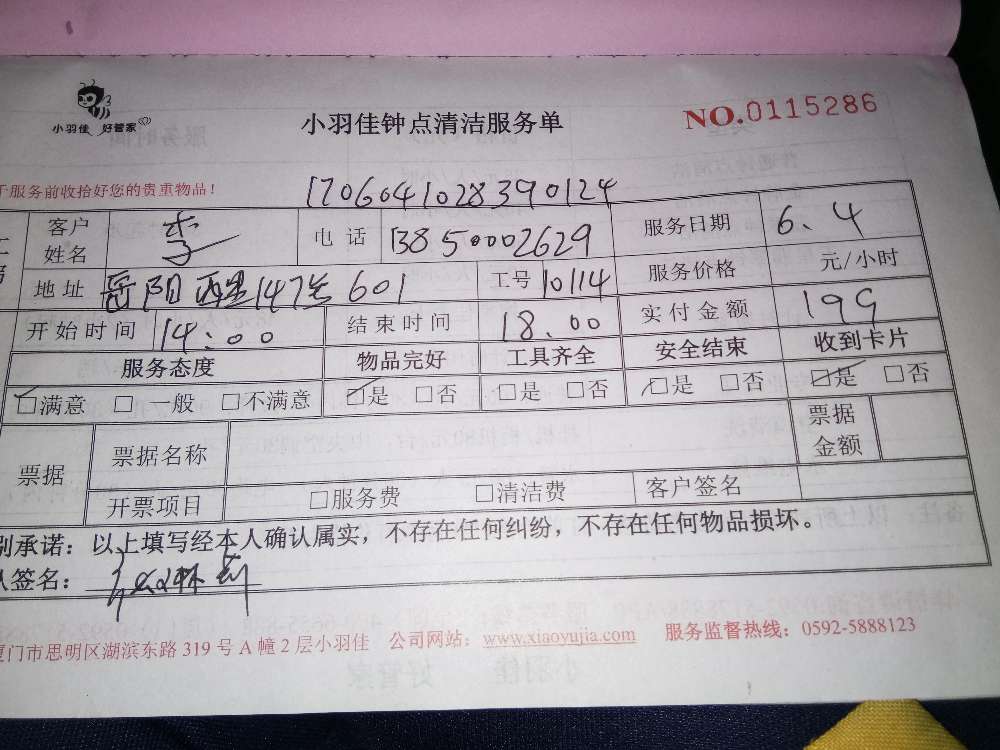 小羽佳 好管家
小羽佳钟点清洁服务单
NO.0115286
于服务前收拾好您的贵重物品！
170604102839 0124
客户姓名 李 电话 13850002629 服务日期 6.4
地址 岳阳 147 601 工号 10114 服务价格 元/小时
开始时间 14:00 结束时间 18.00 实付金额 199
服务态度 物品完好 工具齐全 安全结束 收到卡片
☑满意 □一般 □不满意 ☑是 □否 □是 □否 ☑是 □否 ☑是 □否
票据 票据名称 票据金额
开票项目 □服务费 □清洁费 客户签名
别承诺：以上填写经本人确认属实，不存在任何纠纷，不存在任何物品损坏。
人签名：
厦门市思明区湖滨东路319号A幢2层小羽佳 公司网站：www.xiaoyujia.com 服务监督热线：0592-5888123